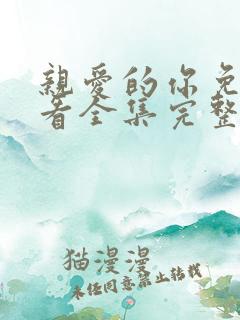 親愛的你免
看全集完整
猫漫漫
未经同意禁止转载